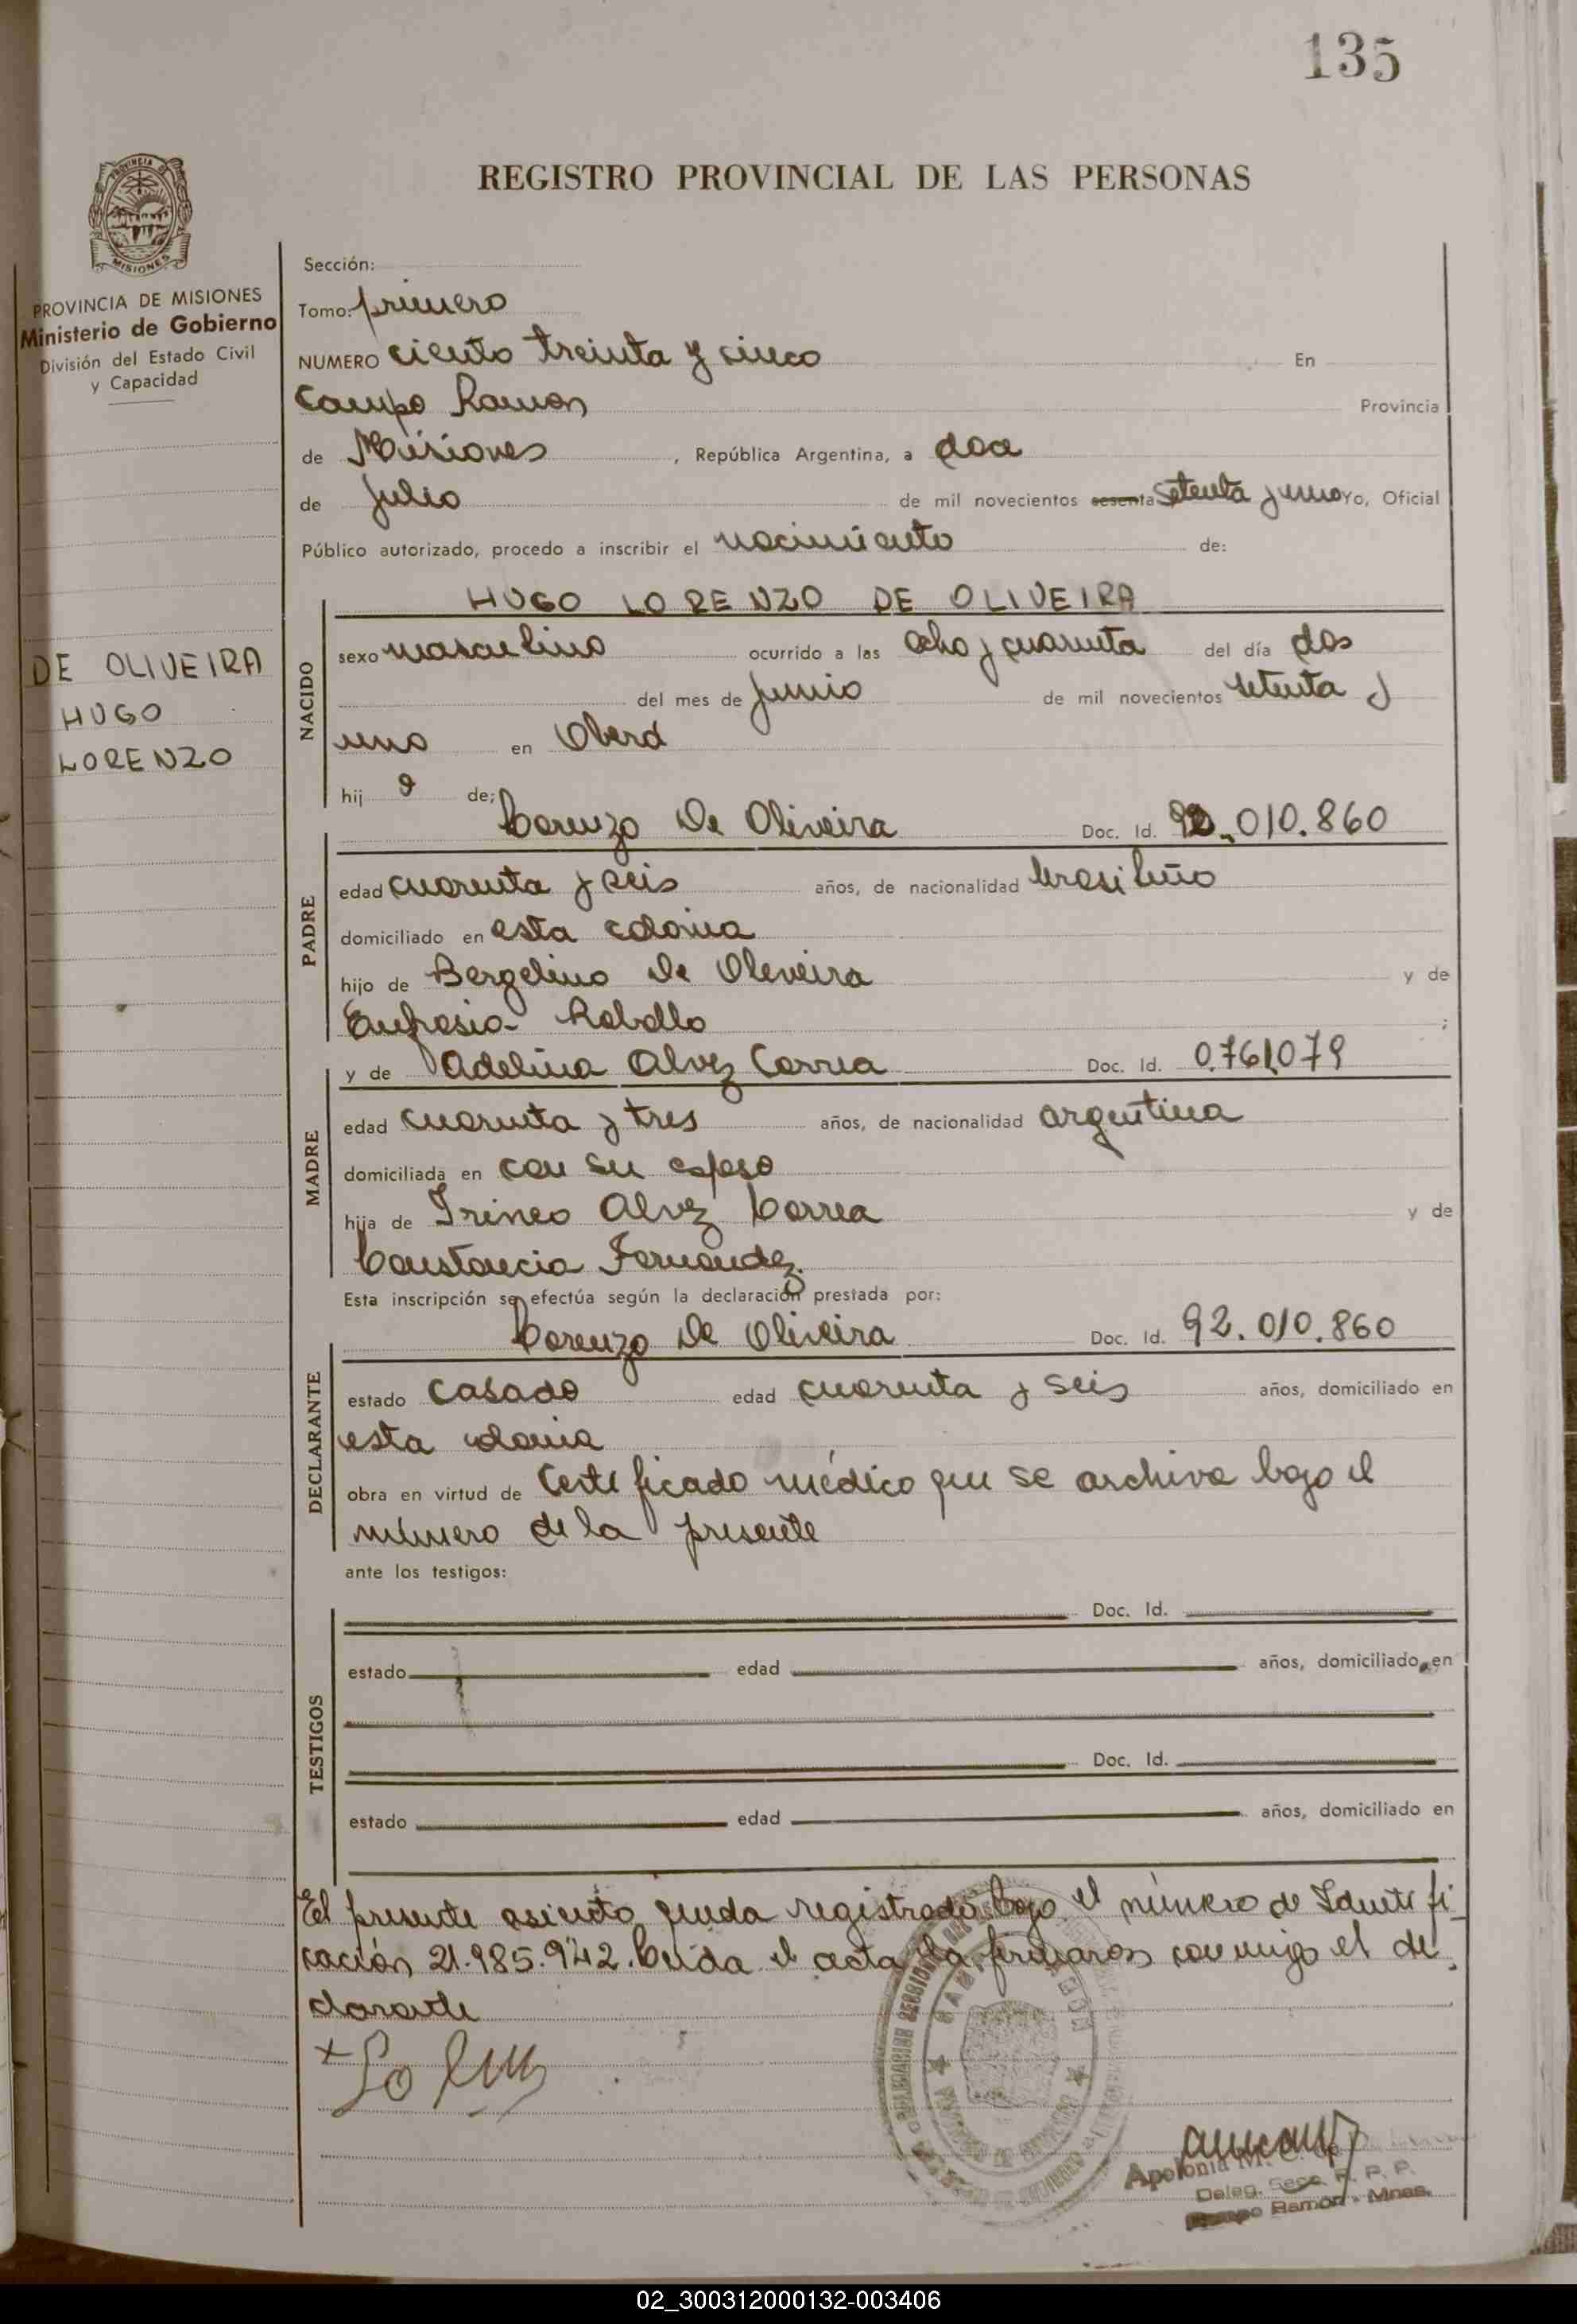 135
REGISTRO PROVINCIAL DE LAS PERSONAS
PROVINCIA
MISIONES
PROVINCIA DE MISIONES
Ministerio de Gobierno
División del Estado Civil
y Capacidad
DE OLIVEIRA
HUGO
LORENZO
Sección:
Tomo: primero
NUMERO ciento treinta y cinco En
Campo Ramon Provincia
de Misiones, República Argentina, a doce
de Julio de mil novecientos sesenta Setenta y uno Yo, Oficial
Público autorizado, procedo a inscribir el nacimiento de:
HUGO LORENZO DE OLIVEIRA
NACIDO
sexo masculino ocurrido a las ocho y cuarenta del día dos
del mes de Junio de mil novecientos setenta y
uno en Oberá
hij o de;
Lorenzo De Oliveira Doc. Id. 92.010.860
PADRE
edad cuarenta y seis años, de nacionalidad brasileño
domiciliado en esta colonia
hijo de Bergelino De Oleveira y de
Eufrasia Rabello ;
y de Adelina Alvez Correa Doc. Id. 0.761.079
MADRE
edad cuarenta y tres años, de nacionalidad argentina
domiciliada en con su esposo
hija de Irineo Alvez Correa y de
Constancia Fernandez.
Esta inscripción se efectúa según la declaración prestada por:
Lorenzo De Oliveira Doc. Id. 92.010.860
DECLARANTE
estado casado edad cuarenta y seis años, domiciliado en
esta colonia
obra en virtud de Certificado médico que se archiva bajo el
número de la presente
ante los testigos:
TESTIGOS
Doc. Id.
estado edad años, domiciliado en
Doc. Id.
estado edad años, domiciliado en
El presente asiento queda registrado bajo el número de Identifi
cación 21.985.942. Leida el acta la firmaron conmigo el de
clarante
Apolonia M.
Deleg. Secc. R. P. P.
Campo Ramón - Mnes.
02_300312000132-003406